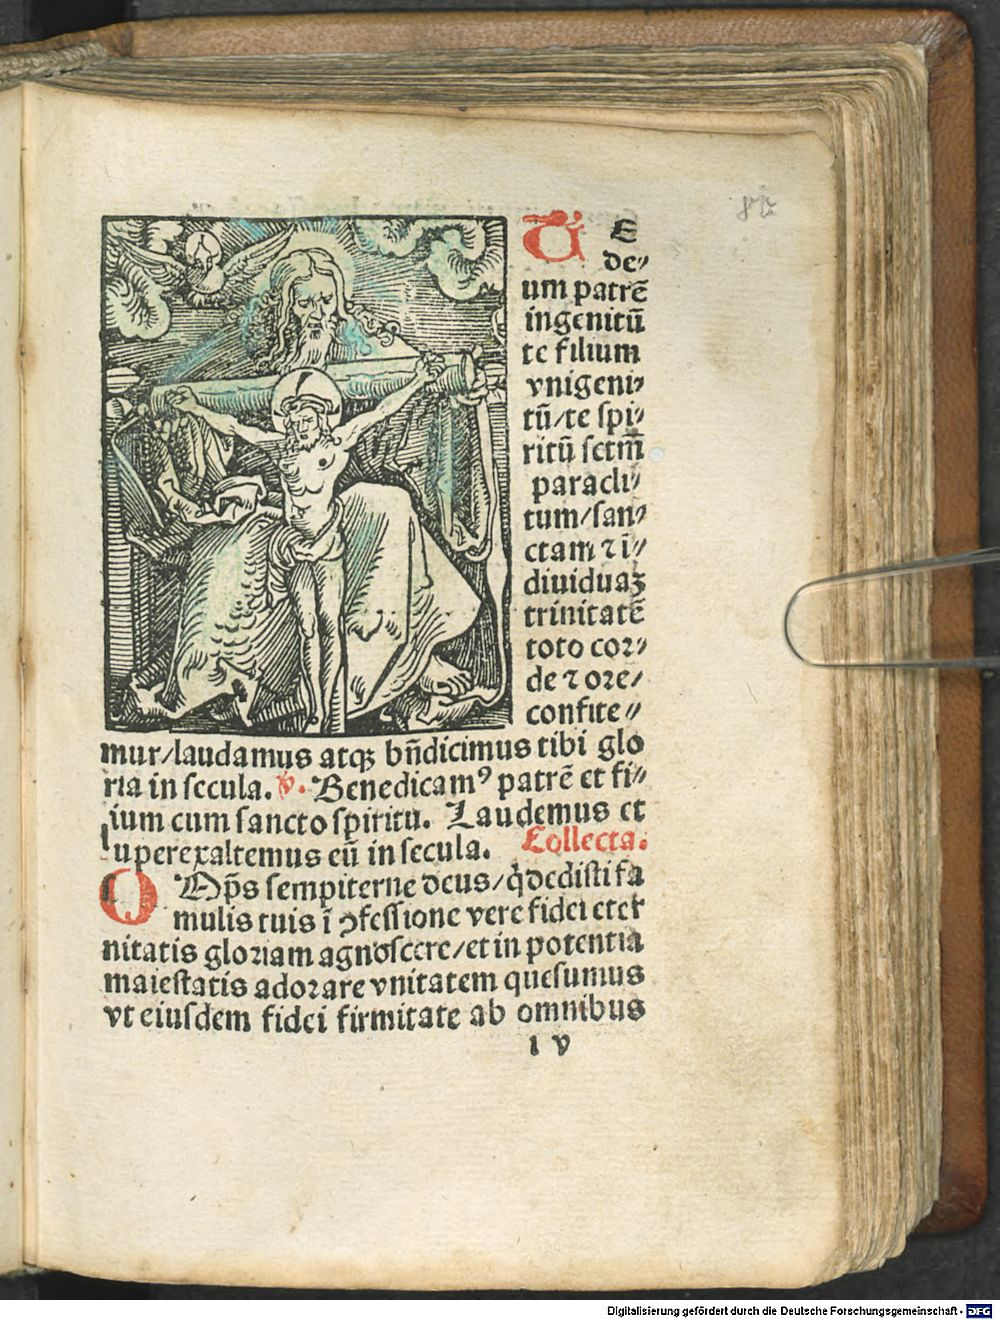 87
TE
de⸗
um patrē
ingenitū
te filium
vnigeni⸗
tū/te spi⸗
ritū sctm̄
paracli⸗
tum/san⸗
ctam ⁊ ī⸗
diuiduaꝫ
trinitatē
toto cor⸗
de ⁊ ore/
confite⸗
mur/laudamus atqꝫ bn̄dicimus tibi glo
ria in secula. ℣. Benedicamꝰ patrē et fi⸗
lium cum sancto spiritu. Laudemus et
superexaltemus eū in secula. Collecta.
OMp̄s sempiterne deus/q̇ dedisti fa
mulis tuis ī ꝯfessione vere fidei eter
nitatis gloriam agnoscere/et in potentia
maiestatis adorare vnitatem quesumus
vt eiusdem fidei firmitate ab omnibus
l v
Digitalisierung gefördert durch die Deutsche Forschungsgemeinschaft - DFG